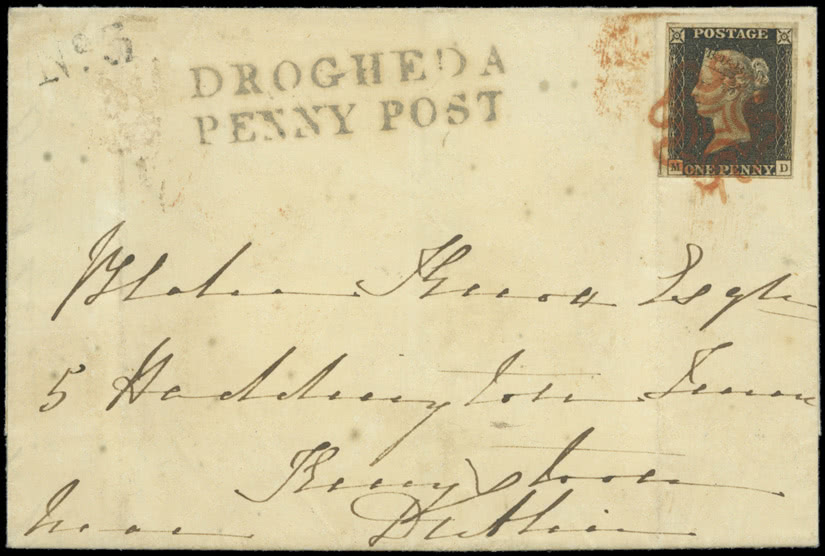 No. 5
DROGHEDA
PENNY POST
POSTAGE
M D
ONE PENNY
Blake Knox Esqre
5 Haddington Terrace
Kingstown
near Dublin